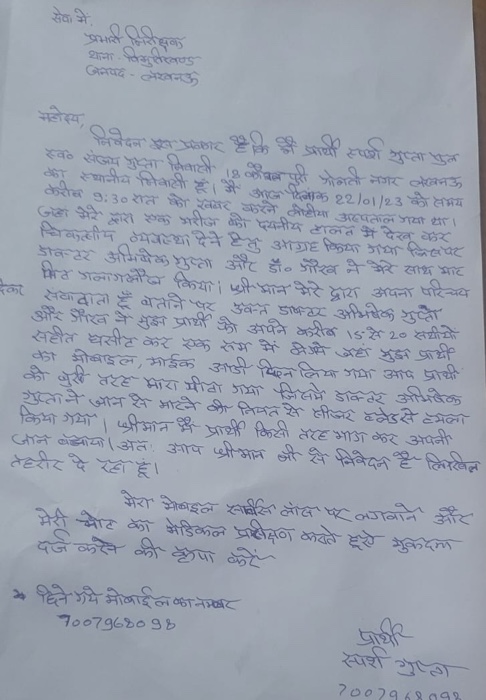 सेवा में,
प्रभारी निरीक्षक
थाना - विभूतिखण्ड
जनपद - लखनऊ
महोदय,
निवेदन इस प्रकार है कि मैं प्रार्थी स्पर्श गुप्ता पुत्र
स्व० संजय गुप्ता निवासी 18 पुरी गोमती नगर लखनऊ
का स्थानीय निवासी हूँ। मैं आज दिनांक 22/01/23 को समय
करीब 9:30 रात को खबर करने लोहिया अस्पताल गया था।
जहा मेरे द्वारा एक मरीज को दयनीय हालत में देख कर
चिकित्सीय व्यवस्था देने हेतु आग्रह किया गया जिसपर
डाक्टर अभिषेक गुप्ता और डॉ० गौरव ने मेरे साथ मार
पिट गलागलौज किया। श्रीमान मेरे द्वारा अपना परिचय
सवादाता हूँ बताने पर उक्त डाक्टर अभिषेक गुप्ता
और गौरव ने मुझ प्रार्थी को अपने करीब 15 से 20 साथीयो
सहीत घसीट कर एक रूम में लेगये जहा मुझ प्रार्थी
का मोबाइल, माईक आडी छिन लिया गया आप प्रार्थी
को बुरी तरह मारा पीटा गया जिसमे डाक्टर अभिषेक
गुप्ता ने जान से मारने की नियत से सीजर ब्लेडसे हमला
किया गया। श्रीमान मैं प्रार्थी किसी तरह भाग कर अपनी
जान बचाया। अतः आप श्रीमान जी से निवेदन है लिखित
तहरीर दे रहा हूं।
मेरा मोबाइल पर लगवाने और
मेरी चोट का मेडिकल परीक्षण कराते हुये मुकदमा
दर्ज करने की कृपा करें
* छिने गये मोबाईल का नम्बर
7007968098
प्रार्थी
स्पर्श गुप्ता
7007968098